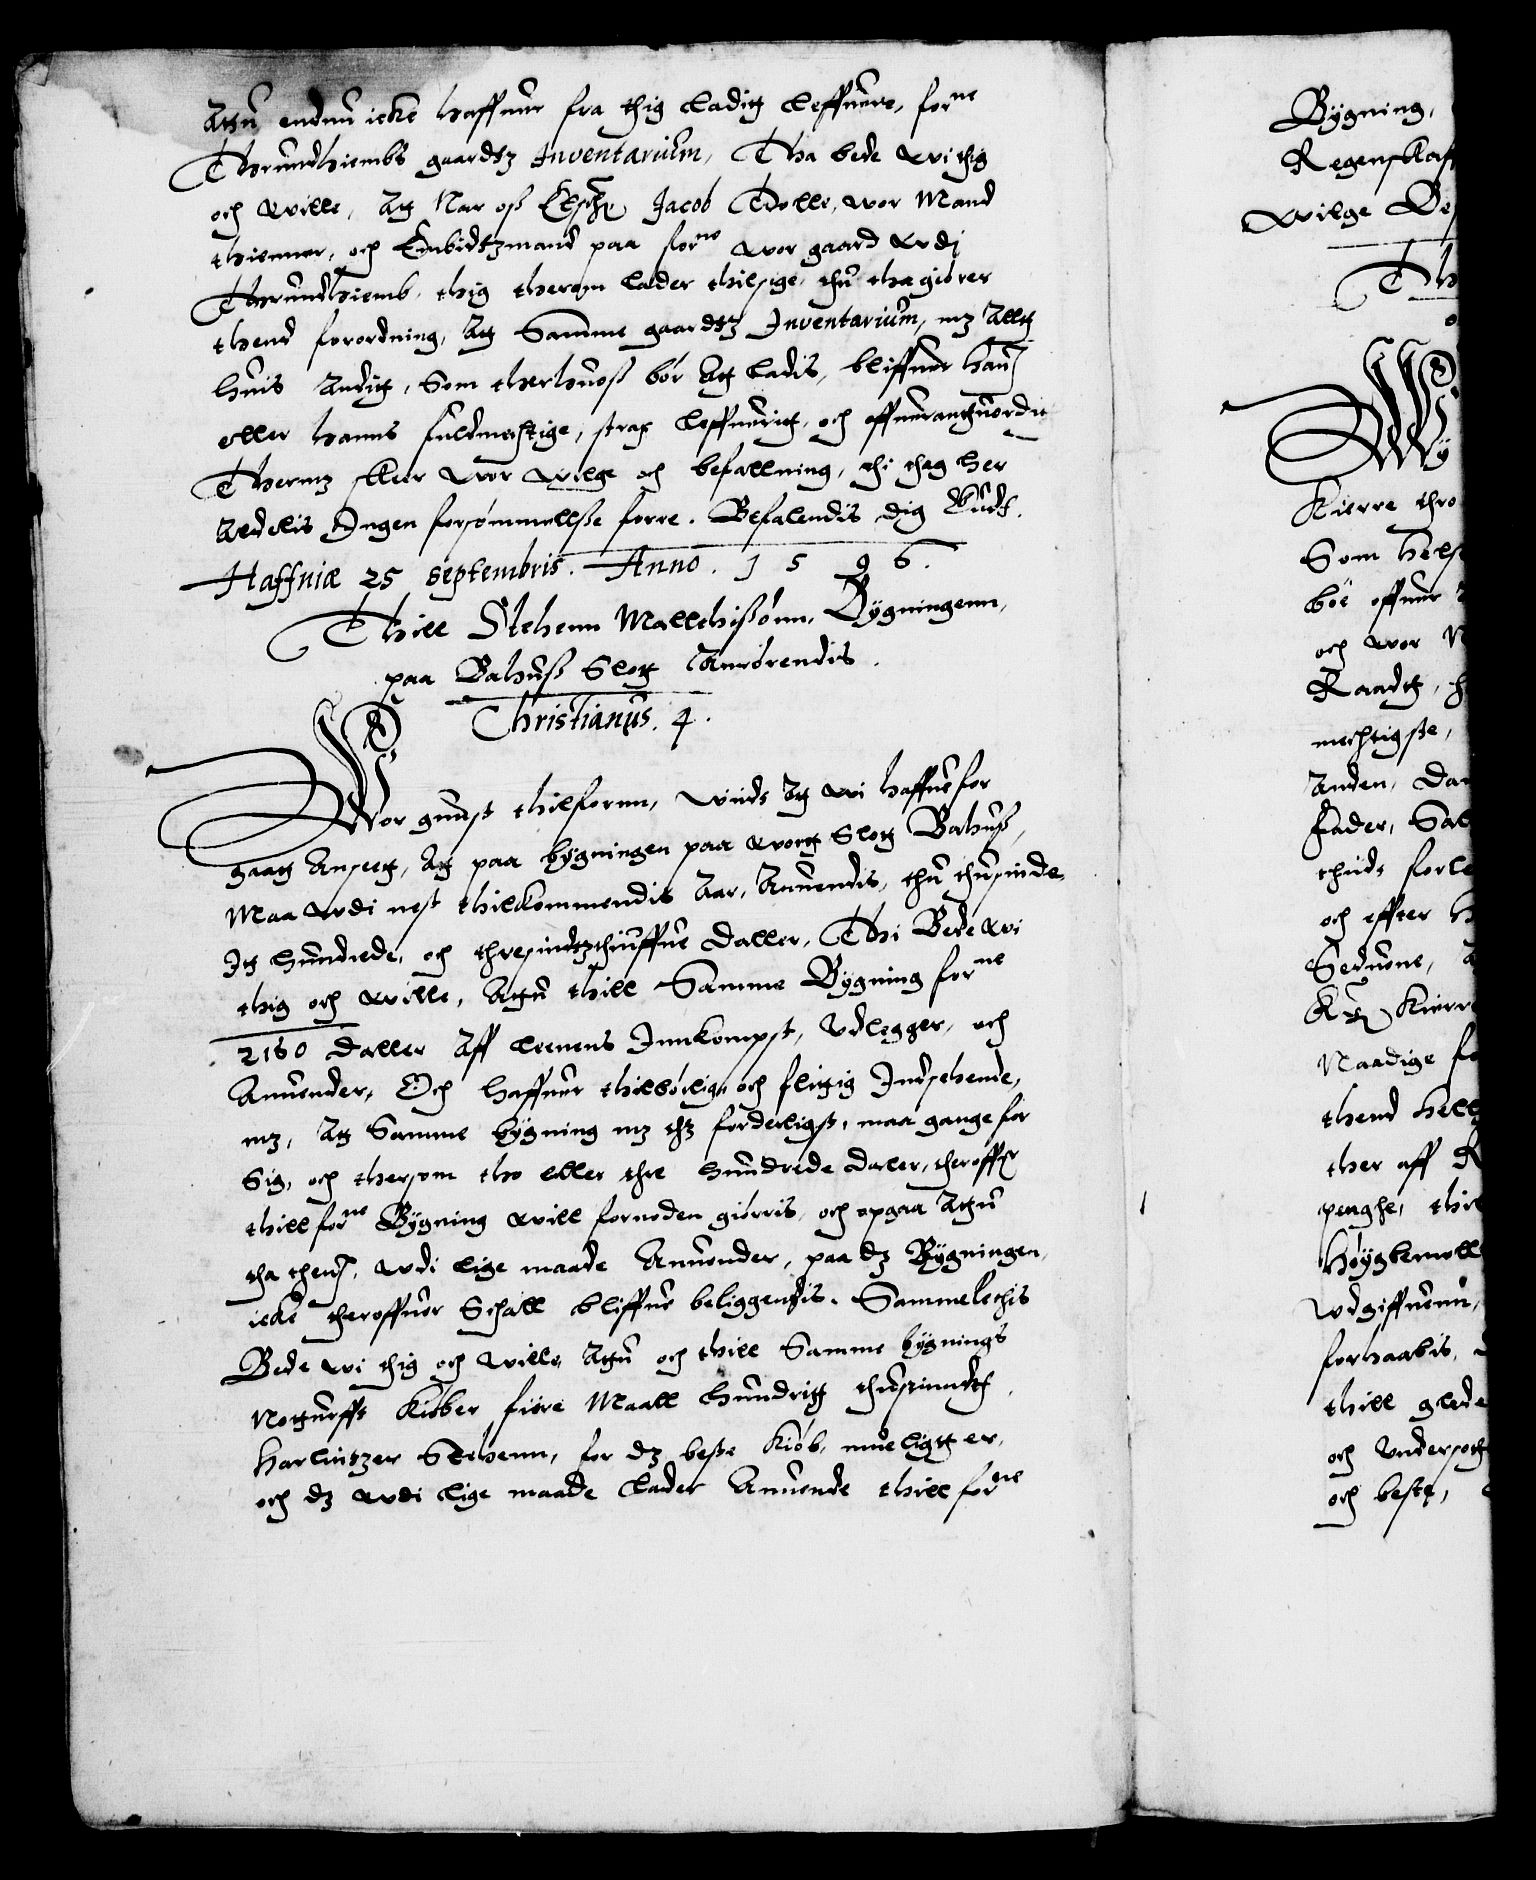 Attu endnu icke haffuer fra thig ladit leffuere, forne
Thrundhiembs gaardtz Inventarium, Tha bede wi thig
och wille, At Nar oss Elskr Jacob Trolle, wor Mand
thienner, och Embidtzmand paa forne wor gaard wdj
Thrundhiemb, thig therom lader thilsige, thu tha giører
thend forordning, At Samme gaardtz Inventarium, mz Allt
huis Andit, Som therhuoss bór At ladis, bliffuer hanu
eller hanns fuldmechtige, strax leffuerit, och offuerantuordit
Thermz skeer wor wilge och befallning, thi thag her
Aedelis Ingen forsömmellsse forre. Befalendis dig Gudt.
Haffniæ 25 septembris. Anno. 1 5 9 6.
Thill Stehenn Mallthissønn, Bygningenn,
paa Bahuss Slott Anrörendis.
Christianus. 4.
Wor gunst thilfornn, wiids At wi haffue for
gaatt Anseet, At paa bygningen paa wortt Slott Bahuss,
Maa wdi nest thilkommendis Aar, Anuendis, thu thusinde
It hundrede, och thresindtzthiuffue Daller, Thi Bede wi
thig och wille, Attu thill Samme Bygning forne
2160 Daller Aff leenens Innkompst, Udlegger, och
Anuender, Och haffuer thillbörlig och flittig Indsehende,
mz, At Samme bygning mz thz forderligst, maa gange for
Sig, och thersom tho eller thre hundrede daler, theroffr
thill forne Bygning will fornoden giörris, och opgaa Attu
tha thenu, wdi lige maade Anuender, paa dz Bygningen,
icke theroffuer Schall bliffue beliggendis. Sammelechis
Bede wi thig och wille, Attu och thill Samme bygnings
Notturfft Kiöber fiire Maall hundrit thusinndt
Harlintzer Steheun, for dz beste Kiöb, mueligt er,
och dz wdi lige maade lader Anuende thill forne
Bygning,
Regenskaff
wilge
Th
Wy
Kierre thro
Som hels
böe offuer
och wor
Raadt,
mechtigste,
Anden, Dan
Fader, Sal
thiids forle
och effter
Seduone,
Kierre
Naadige fo
thend hell
ther aff
penghe, thi
Höygbemell
Udgiffuenn,
forhaabis,
thill glede
och Undersott
och beste,